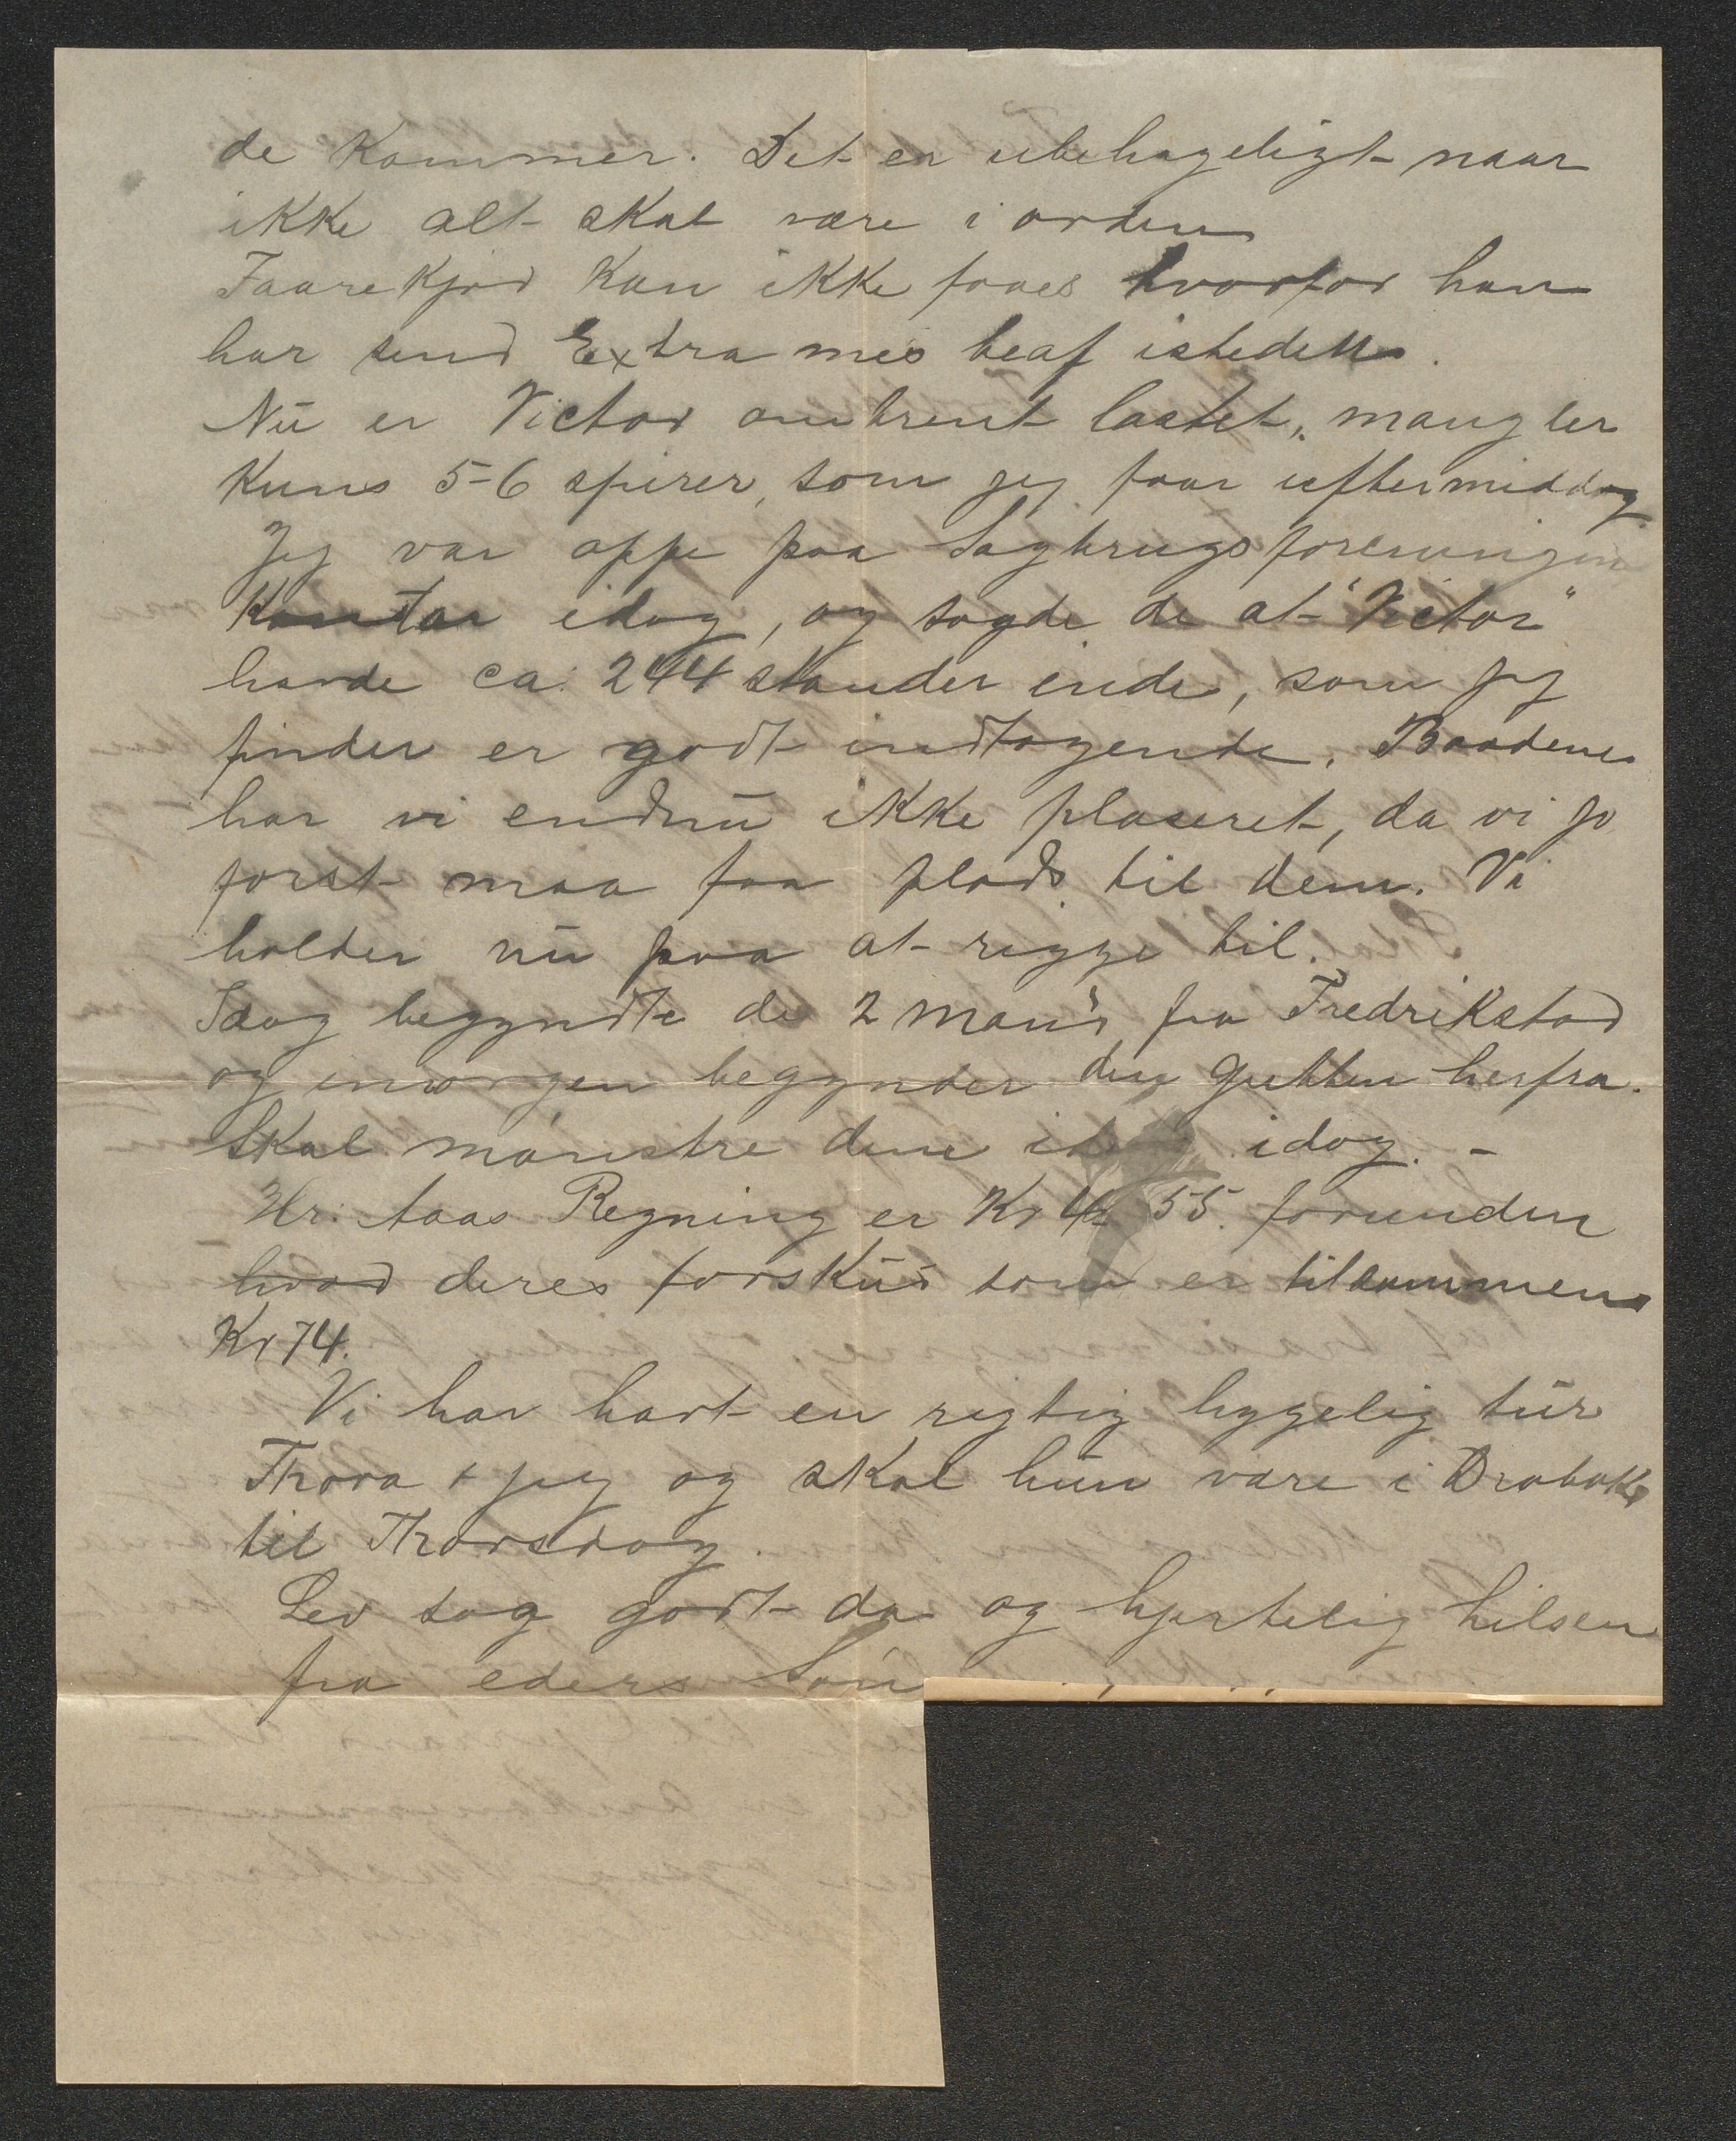 de Kommer. Det er ubehageligt naar
ikke alt skal være i orden
Faarekjød Kan ikke faaes hvorfor han
har send Extra mes beaf isteden.
Nū er Victor ombrent lastet, mangler
Kuns 5-6 spirer, som jeg faar ieftermiddag
Jeg var oppe paa Sagbrugsforeningen
Kontor idag, og sagde de at "Victor"
havde ca. 244 stander inde, som jeg
finder er godt indtagende. Baadene
har vi endnū ikke plaseret, da vi jo
forst maa faa plads til dem. Vi
holder nū paa at rigge til.
Idag begyndte de 2 mand fra Fredrikstad
og imorgen begynder den Gutten herfra.
Skal mønstre dem idag. -
Hr. Aaas Regning er Kr 55. forunden
hvad deres forskūd som er tilsammen
Kr 74.
Vi har havt en rigtig hyggelig tūr
Thora + jeg og skal hūn være i Drøbak
til Thorsdag.
Lev saa godt da og hjertelig hilsen
fra eders Søn